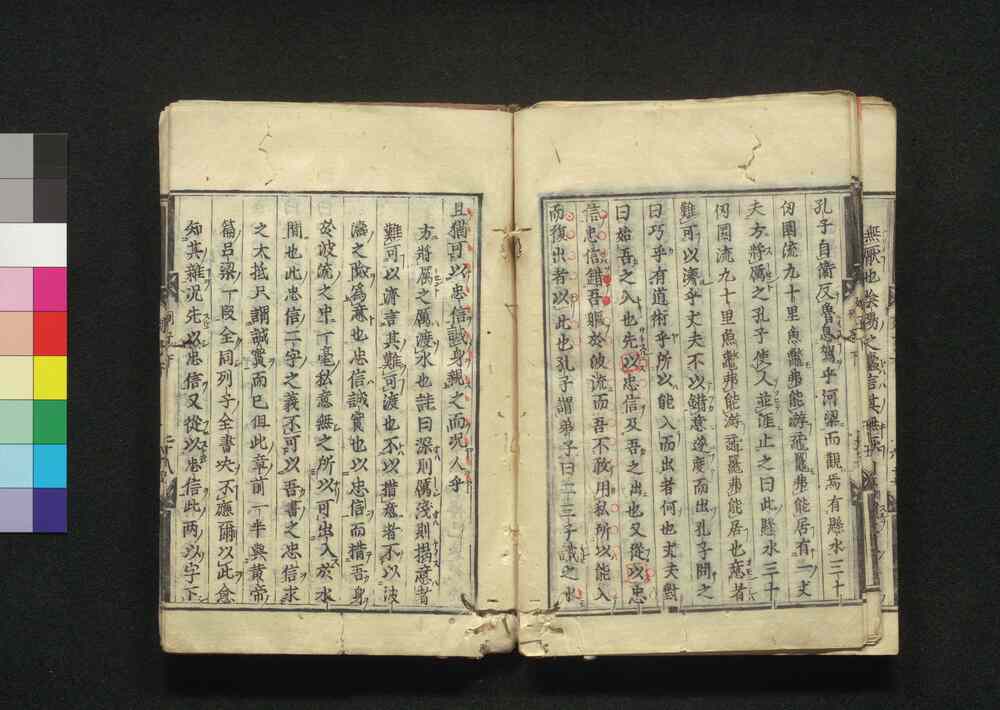 孔子自衛反魯息駕乎河梁而觀焉有懸水三十
仞圜流九十里魚鼈弗能游黿鼉弗能居有一丈
夫方將厲之孔子使人並涯止之曰此懸水三十
仞圜流九十里魚鼈弗能游黿鼉弗能居也意者
難可以濟乎丈夫不以錯意遂度而出孔子問之
曰巧乎有道術乎所以能入而出者何也丈夫對
曰始吾之入也先以忠信及吾之出也又從以忠
信忠信錯吾軀於波流而吾不敢用私所以能入
而復出者以此也孔子謂弟子曰二三子識之水
且猶可以忠信誠身親之而況人乎
方將厲之厲渡水也詩曰深則厲淺則揭意者
難可以濟言其難可渡也不以措意者不以波
濤之險為意也忠信誠實也以忠信而措吾身
於波流之中一毫私意無之所以可出入於水
間也此忠信二字之義不可以吾書之忠信求
之大抵只謂誠實而已但此章前一半與黄帝
篇呂梁一段全同列子全書決不應爾以此愈
知其雜況先以忠信又從以忠信此兩以字下